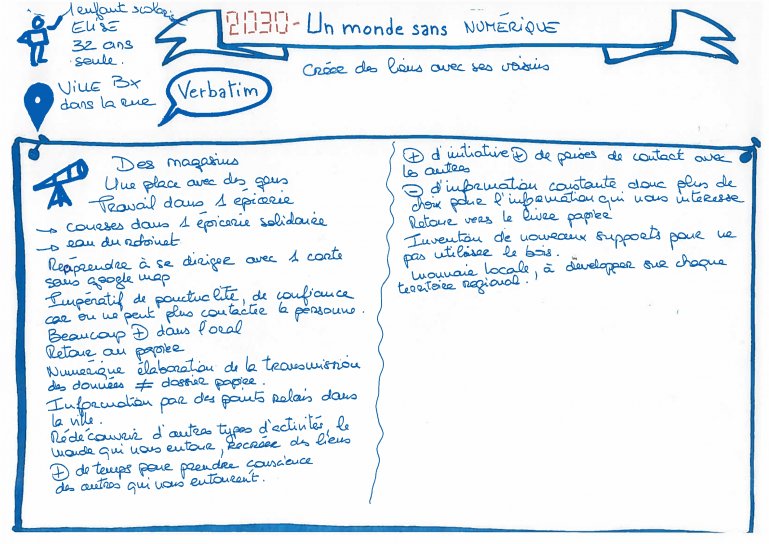 1 enfant scolarisé
ELISE
32 ans
seule.
2030 - Un monde sans NUMÉRIQUE
Créer des liens avec ses voisins
VILLE Bx
dans la rue
Verbatim
Des magasins
Une place avec des gens
Travail dans 1 épicerie
→ courses dans 1 épicerie solidaire
→ eau du robinet
Réaprendre à se diriger avec 1 carte
sans google map
Impératif de ponctualité, de confiance
car on ne peut plus contacter la personne.
Beaucoup + dans l'oral
Retour au papier
Numérique élaboration de la transmission
des données ≠ dossier papier.
Information par des points relais dans
la ville.
Rédécouvrir d'autres types d'activités, le
monde qui nous entour, recréer des liens
+ de temps pour prendre conscience
des autres qui nous entourent.
+ d'initiative + de prises de contact avec
les autres
- d'information constante donc plus de
choix pour l'information qui nous interesse
Retour vers le livre papier
Invention de nouveaux supports pour ne
pas utiliser le bois.
Monnaie locale, à développer sur chaque
territoire régional.